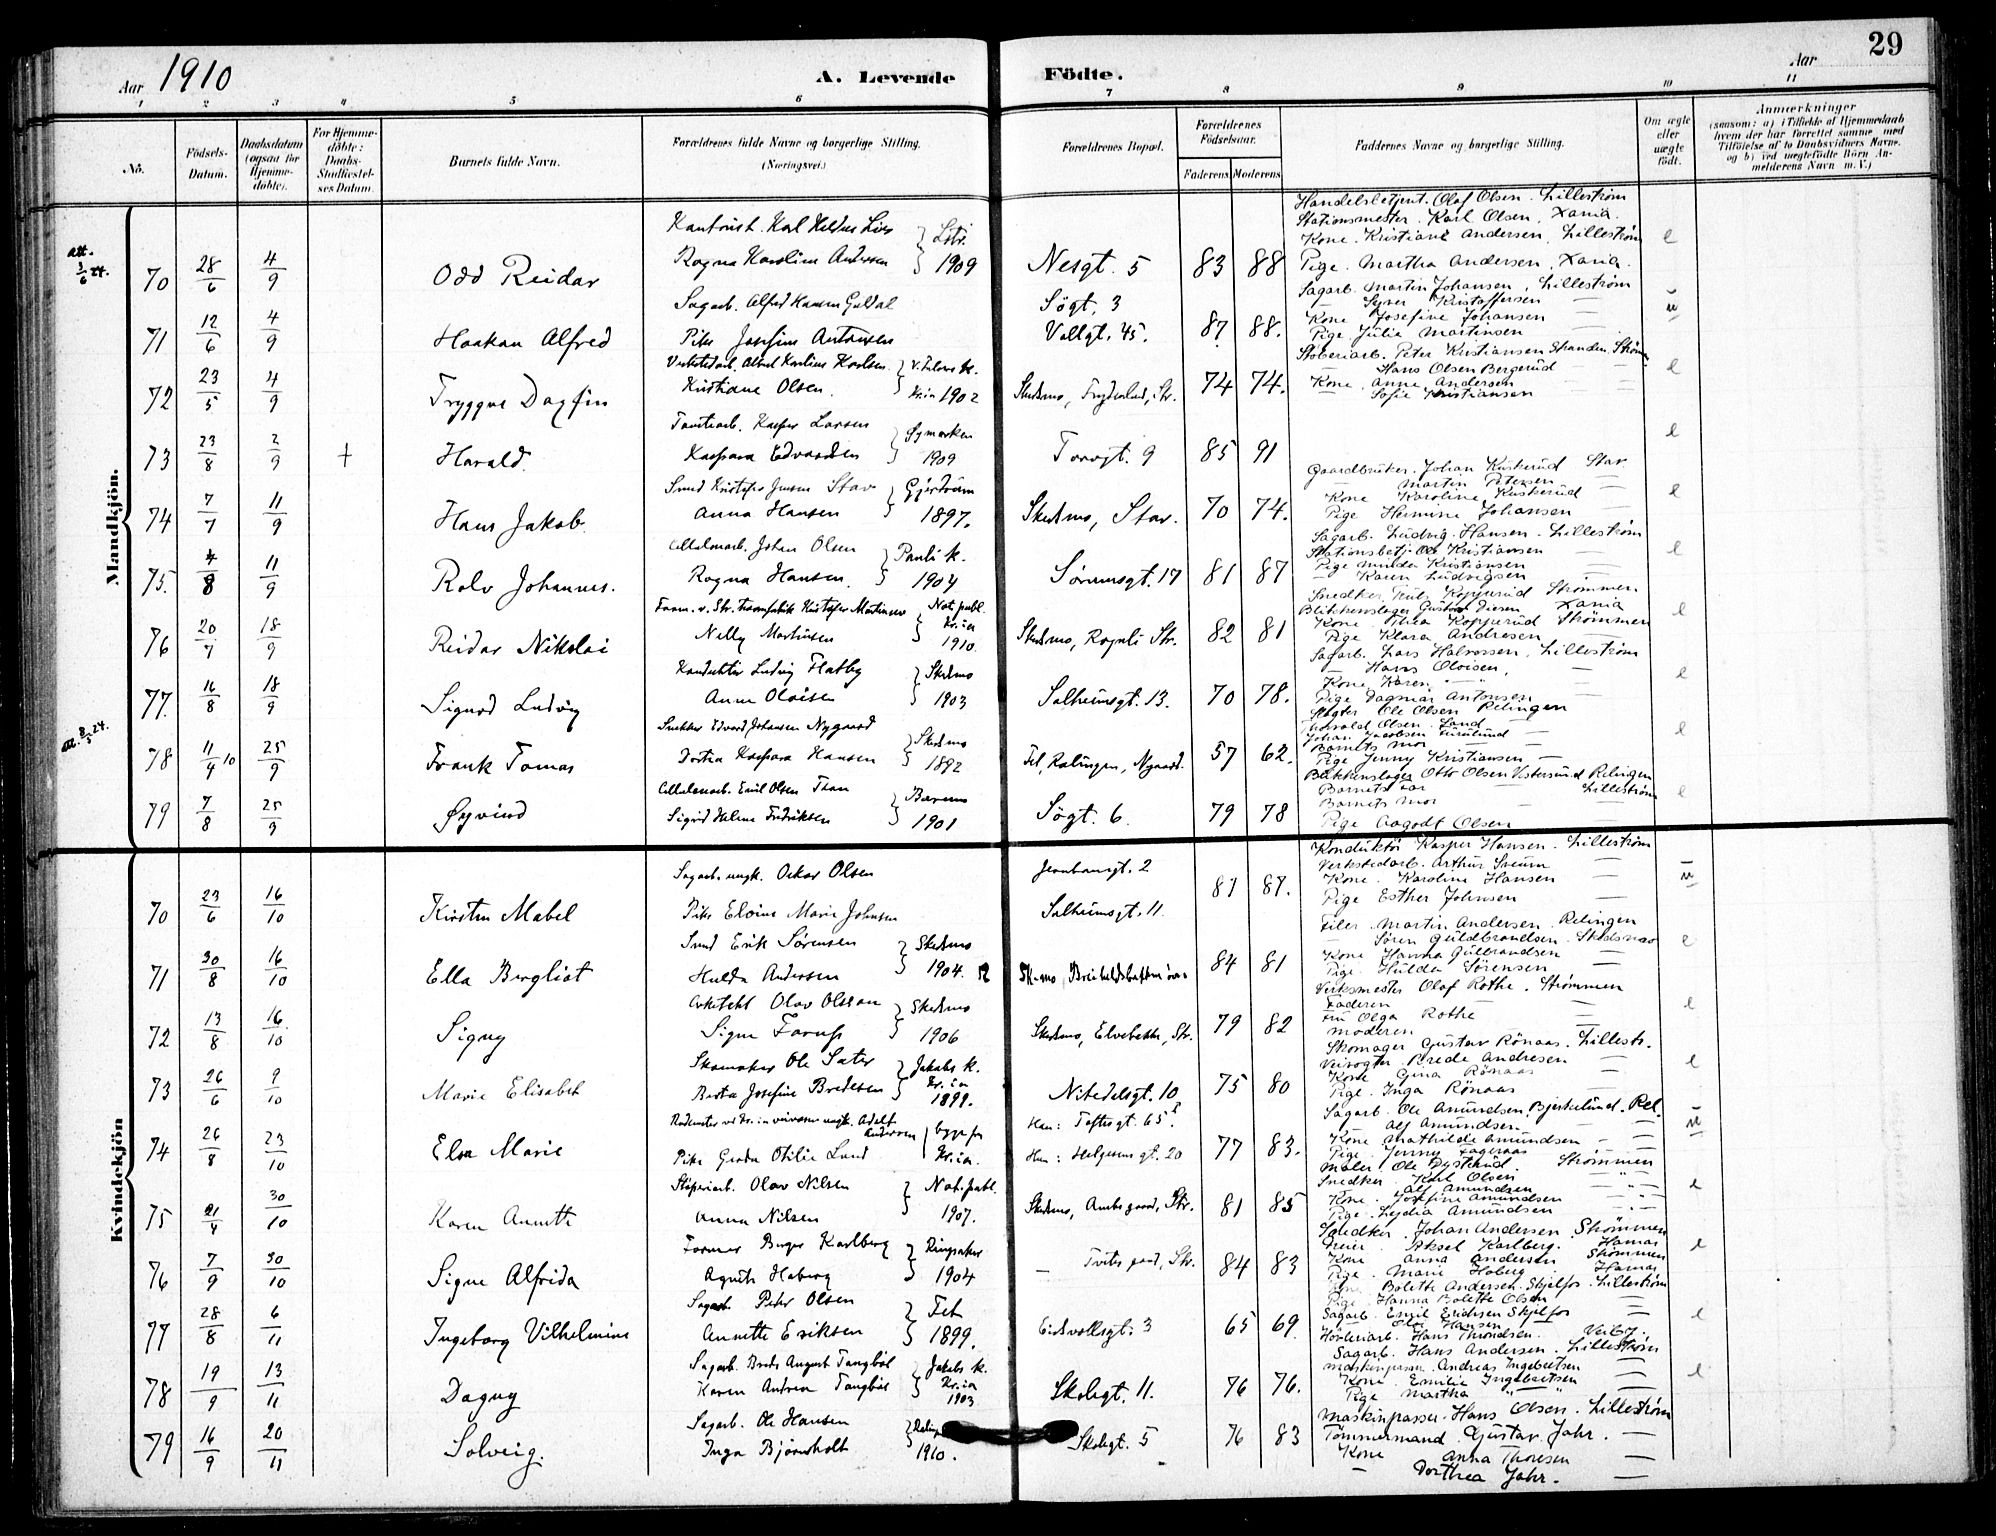 29
Aar 1910
A. Levende Födte.
Aar
1 2 3 4 5 6 7 8 9 10 11
No.
Födsels-Datum.
Daabsdatum (ogsaa for Hjemme-döbte).
For Hjemme-döbte: Daabs-Stadfæstel-ses Datum.
Barnets fulde Navn.
Forældrenes fulde Navne og borgerlige Stilling. (Næringsvei.)
Forældrenes Bopæl.
Forældrenes Födselsaar.
Faderens Moderens
Faddernes Navne og borgerlige Stilling.
Om ægte eller uægte födt.
Anmærkninger
(saasom: a) i Tilfælde af Hjemmedaab
hvem der har forrettet samme med
Tilföielse af to Daabsvidners Navne.
og b) ved uægtefödte Börn An-
melderens Navn m.V.)
Mandkjön.
70 28/6 4/9 Odd Reidar
Ragna Karoline Andersen 1909
Nesgt. 5 83 88
Handelsbetjent. Olaf Olsen. Lillestrøm
Stationsmester. Karl Olsen, Xania.
Kone. Kristiane Andersen, Lillestrøm e
Pige. Martha Andersen, Xania.
71 12/6 4/9 Haakon Alfred
Sagarb. Alfred Hansen Guldal
Pike Josefine Antonsen
Søgt. 3
Vollgt. 45. 87 88.
Sagarb. Martin Johansen, Lillestrøm
— Syver Kristoffersen —
Kone Josefine Johansen — u
Pige Julia Martinsen —
72 23/5 4/9 Tryggve Dagfin
Kristiane Olsen. Kr.ia 1902
Skedsmo, Frydenlund, Str. 74 74.
Støberiarb. Peter Kristiansen Stranden. Strøm
— Hans Olsen Bergerud — e
Kone, Anne Andersen —
— Sofie Kristiansen —
73 23/8 2/9 + Harald.
Tomtearb. Kasper Larsen Øymarken
Kaspara Edvardsen 1909
Torvgt. 9 85 91 e
74 7/7 11/9 Hans Jakob.
Smed Kristofer Jensen Stav Gjerdrum
Anna Hansen 1897.
Skedsmo, Stav. 70 74.
Gaardbruker. Johan Kuskerud Stav
— Martin Petersen —
Kone Karoline Kuskerud — e
Pige Hermine Johansen —
75. 4/8 11/9 Rolv Johannes.
Johan Olsen Pauli k.
Ragna Hansen 1904
Sørumsgt. 17 81 87
Sagarb. Ludvig Hansen. Lillestrøm
Stationsbetj. Ole Kristiansen — e
Pige Minda Kristiansen —
— Karen Ludvigsen —
76 20/7 18/9 Reidar Nikolai
Nelly Martinsen Nat. publ. Kr.ia 1910.
82 81
Snedker Nils Kopperud Strømmen
Blikkenslager Gustav Xania
Kone Thea Kopperud Strømmen e
Pige Klara Andresen —
77. 16/8 18/9 Sigurd Ludvig
Konduktør Ludvig Flatby Skedsmo
Anne Olaisen 1903
Solheimsgt. 13. 70 78.
Sagarb. Lars Halvorsen, Lillestrøm
— Hans Oloisen, —
Kone Karen —"— — e
Pige Dagmar Antonsen —
78 11/4 10 25/9 Frank Tomas
Snekker Edvard Johansen Nygaard Skedsmo
Dortea Kaspara Hansen 1892
Fet, Rælingen, Nygaard. 57 62.
Slagter Ole Olsen Relingen
Thorvald Olsen. Sand —
Johan Jacobsen Furulund — e
Barnets mor —
Pige Jenny Kristiansen —
79 7/8 25/9 Øyvind
Cellulosearb. Emil Olsen Bærum
Sigrid Helene Fredriksen 1901
Søgt. 6. 79 78
Blikkenslager Otto Olsen Vestersund Relingen
Barnets far Lillestrøm e
Barnets mor —
Pige Aagodt Olsen —
Kvindekjön
70 23/6 16/10 Kirsten Mabel
Sagarb. ungk. Oskar Olsen
Pike Elvine Marie Johnsen
Jernbanegt. 2
Solheimsgt. 11. 87 87.
Konduktør Kasper Hansen. Lillestrøm
Verkstedarb. Arthur Sveum —
Kone. Karoline Hansen — u
Pige Esther Johnsen —
71 30/8 16/10 Ella Bergliot
Smed Erik Sørensen Skedsmo
Hulda Andersen 1904.
84 81
Filer. Martin Andersen. Relingen
— Søren Guldbrandsen. Skedsmo e
Kone Hanna Gulbrandsen —
Pige. Hulda Sørensen —
72 13/8 16/10 Signy
Arkitekt Olav Olsson Skedsmo
Signe 1906
Skedsmo, Elvebakken, Str. 79 82
Verksmester Olaf Rothe. Strømmen
Faderen —
Fru Olga Rothe — e
Moderen —
73 26/6 9/10 Marie Elisabet
Skomaker Ole Sæter Jakobs k.
Berta Josefine Bredesen Kr.ia 1899.
Nitedalsgt. 10 75 80
Skomager Gustav Rönaas. Lillestr.
Veivogter. Brede Andresen —
Kone Gina Rönaas — e
Pige Inga Rönaas —
74 26/8 23/10 Elsa Marie
Adolf Andersen
Pike Gerda Otilie Lund Kr.ia.
Han: Toftesgt. 65
Hun: Helgesens gt. 20 77 83.
Sagarb. Ole Amundsen, Bjerkelund. Rel.
Alf Amundsen —
Kone Mathilde Amundsen — u
Pige Jenny Fageraas —
75 21/4 30/10 Karen Annette
Støperiarb. Olav Nilsen Nat. publ.
Anna Nilsen 1907.
81 85
Maler. Ole Bysterud. Strømmen
Snedker Karl Olsen —
Alf Amundsen —
Kone. Josefine Amundsen — e
Pige. Lydia Amundsen —
76 7/9 30/10 Signe Alfrida
Former Birger Karlberg Ringsaker
Agnete Hoberg 1904
— Tveter gaard, Str. 84 83
Snedker Johan Andersen Strømmen
Aksel Karlberg. Hamar
Kone Anna Andersen Strømmen e
Pige. Marie Hoberg Hamar
77 28/8 6/11 Ingeborg Vilhelmine
Sagarb. Peter Olsen Fet
Annette Eriksen 1899.
Eidsvollsgt. 3 65 69.
Kone Bolette Andersen. Skjelfos. Lillestrøm
Pige Hanna Bolette Olsen —
Sagarb. Emil Erichsen Skjelfos —
Olai Hansen — e
Høvleriarb. Hans Throndsen. Veiby.
78 19/9 13/11 Dagny
Sagarb. Brede August Tangbøl Jakobs k.
Karen Andrea Tangbøl Kr.ia 1903
Skolegt. 11. 76 76.
Sagarb. Hans Andersen. Lillestrøm
Maskinpasser. Andreas Ingebretsen —
Kone. Emilie Ingebretsen — e
Pige Martha —"— —
79 16/9 20/11 Solveig.
Sagarb. Ole Hansen
Inga Bjørnholt 1910.
Skolegt. 5 76 83
Maskinpasser. Hans Olsen. Lillestrøm
Tømmermand Gustav Jahr. —
Kone Anna Thoresen —
— Dorthea Jahr. —